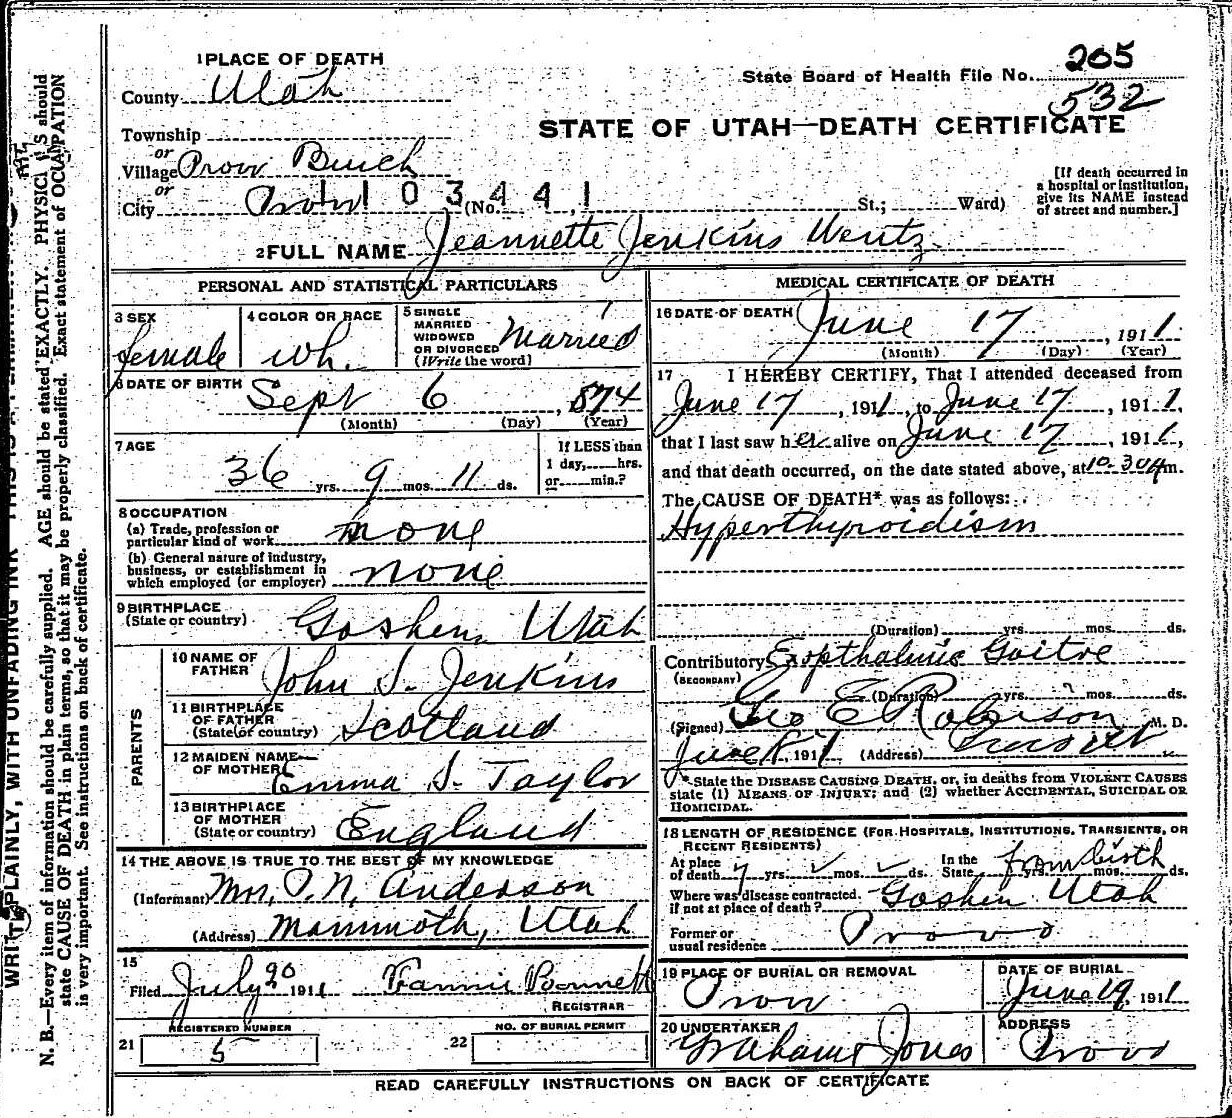 1 PLACE OF DEATH
County Utah
State Board of Health File No. 205
532
STATE OF UTAH—DEATH CERTIFICATE
Township
or
Village Provo Bench
or
City Provo (No. St.; Ward)
1103441
[If death occurred in
a hospital or institution,
give its NAME instead
of street and number.]
2 FULL NAME Jeannette Jenkins Wentz
PERSONAL AND STATISTICAL PARTICULARS
3 SEX
female
4 COLOR OR RACE
wh.
5 SINGLE
MARRIED
WIDOWED
OR DIVORCED
(Write the word)
Married
6 DATE OF BIRTH
Sept 6, 874
(Month) (Day) (Year)
7 AGE
36 yrs. 9 mos. 11 ds.
If LESS than
1 day, hrs.
or min.?
8 OCCUPATION
(a) Trade, profession or
particular kind of work none
(b) General nature of industry,
business, or establishment in
which employed (or employer) none
9 BIRTHPLACE
(State or country) Goshen, Utah
PARENTS
10 NAME OF
FATHER John S. Jenkins
11 BIRTHPLACE
OF FATHER
(State or country) Scotland
12 MAIDEN NAME
OF MOTHER Emma S. Taylor
13 BIRTHPLACE
OF MOTHER
(State or country) England
14 THE ABOVE IS TRUE TO THE BEST OF MY KNOWLEDGE
(Informant) Mrs. P. N. Anderson
(Address) Mammoth, Utah
15
Filed July 20 1911 Fannie Bonnett
REGISTRAR
REGISTERED NUMBER
21 5
NO. OF BURIAL PERMIT
22
MEDICAL CERTIFICATE OF DEATH
16 DATE OF DEATH
June 17, 1911.
(Month) (Day) (Year)
17 I HEREBY CERTIFY, That I attended deceased from
June 17, 1911, to June 17, 1911,
that I last saw her alive on June 17, 1911,
and that death occurred, on the date stated above, at 10.30 Am.
The CAUSE OF DEATH* was as follows:
Hyperthyroidism
(Duration) yrs. mos. ds.
Contributory Exopthalmic Goitre
(SECONDARY)
(Duration) yrs. ? mos. ds.
(Signed) Geo E Robison M. D.
June, 1911 (Address)
*State the DISEASE CAUSING DEATH, or, in deaths from VIOLENT CAUSES
state (1) MEANS OF INJURY; and (2) whether ACCIDENTAL, SUICIDAL OR
HOMICIDAL.
18 LENGTH OF RESIDENCE (FOR HOSPITALS, INSTITUTIONS, TRANSIENTS, OR
RECENT RESIDENTS)
At place
of death yrs. mos. ds.
In the
State from birth yrs. mos. ds.
Where was disease contracted
if not at place of death? Goshen Utah
Former or
usual residence Provo
19 PLACE OF BURIAL OR REMOVAL
Provo
DATE OF BURIAL
June 19, 1911
20 UNDERTAKER
Graham & Jones
ADDRESS
Provo
READ CAREFULLY INSTRUCTIONS ON BACK OF CERTIFICATE
PLAINLY, WITH UNFADING INK
N. B.—Every item of information should be carefully supplied. AGE should be stated EXACTLY. PHYSICIANS should
state CAUSE OF DEATH in plain terms, so that it may be properly classified. Exact statement of OCCUPATION
is very important. See instructions on back of certificate.